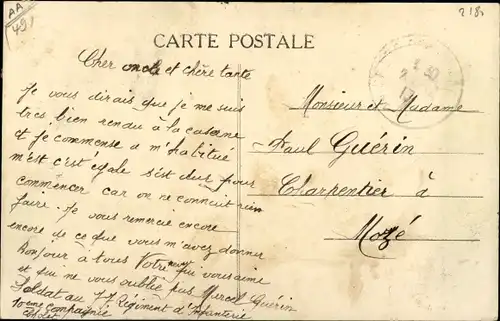 AA
491
218
CARTE POSTALE
Cher oncle et chère tante
Je vous dirais que je me suis
tres bien rendu à la caserne
et je commense a m'habitué
m'est c'est égale s'est dur pour
commencer car on ne connait rien
faire. Je vous remercie encore
encore de ce que vous m'avez donner
Bonjour à tous Votre neveu qui vous aime
et qui ne vous oublie pas Marcel Guérin
Soldat au 77 Régiment d'Infanterie
10eme Compagnie
Cholet
Monsieur et Madame
Paul Guérin
Charpentier à
Mozé